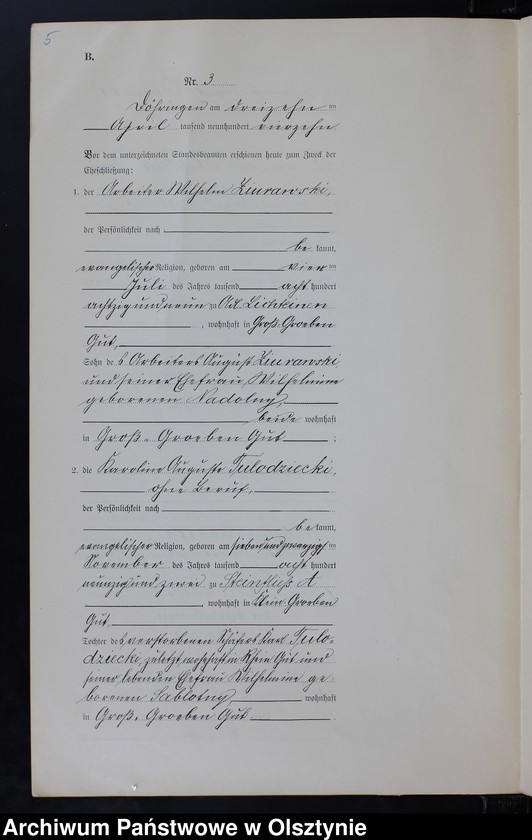 5
B.
Nr. 3
Döhringen am dreizehn ten
April tausend neunhundert vierzehn
Vor dem unterzeichneten Standesbeamten erschienen heute zum Zweck der
Eheschließung:
1. der Arbeiter Wilhelm Zurawski,
der Persönlichkeit nach
be kannt,
evangelischer Religion, geboren am vier ten
Juli des Jahres tausend acht hundert
achtzig und neun zu Adl. Lichteinen
, wohnhaft in Groß-Groeben
Gut,
Sohn des Arbeiters August Zurawski
und seiner Ehefrau Wilhelmine
geborenen Nadolny,
beide wohnhaft
in Groß-Groeben Gut ;
2. die Karoline Auguste Tulodziecki,
ohne Beruf,
der Persönlichkeit nach
be kannt,
evangelischer Religion, geboren am siebenundzwanzig ten
November des Jahres tausend acht hundert
neunzig und zwei zu Steinfließ A
, wohnhaft in Klein-Groeben
Gut,
Tochter des verstorbenen Schäfers Karl Tulo-
dziecki, zuletzt wohnhaft in Rhein Gut und
seiner lebenden Ehefrau Wilhelmine ge-
borenen Sablotny, wohnhaft
in Groß-Groeben Gut .
Archiwum Państwowe w Olsztynie